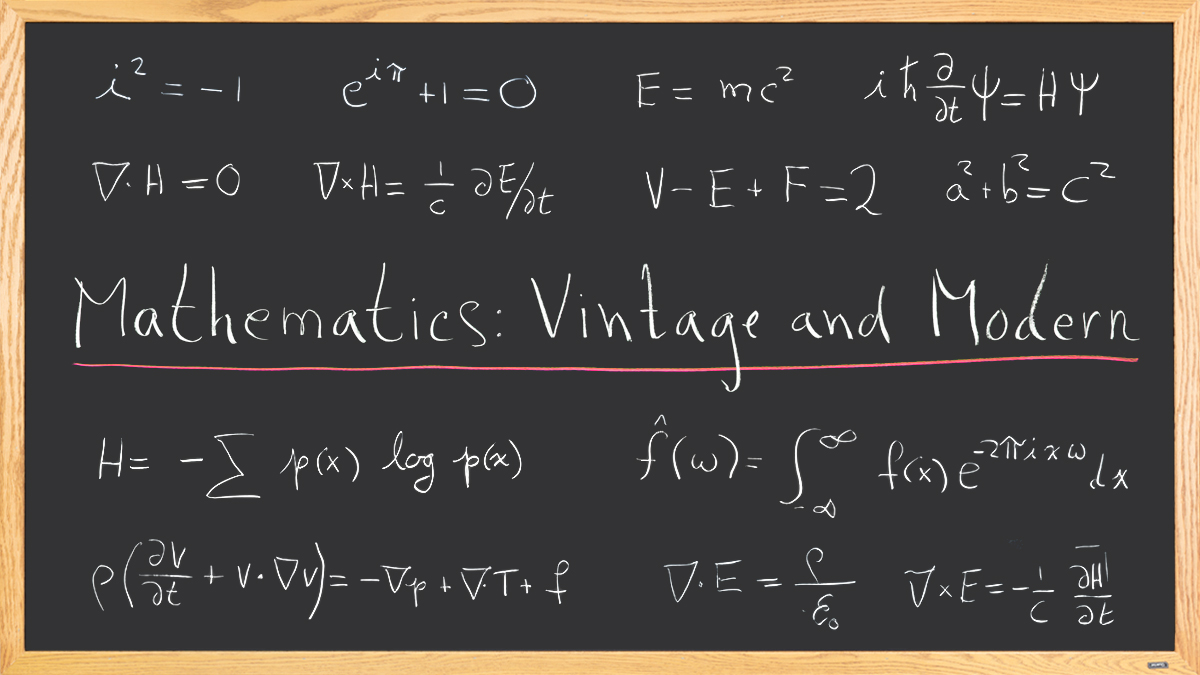 i² = −1 e^{iπ} + 1 = 0 E = mc² iħ ∂/∂t Ψ = HΨ
∇·H = 0 ∇×H = 1/c ∂E/∂t V − E + F = 2 a² + b² = c²
Mathematics: Vintage and Modern
H = −∑ p(x) log p(x) f̂(ω) = ∫_{−∞}^{∞} f(x) e^{−2πixω} dx
ρ(∂v/∂t + v·∇v) = −∇p + ∇·T + f ∇·E = ρ/ε₀ ∇×E = −1/c ∂H/∂t